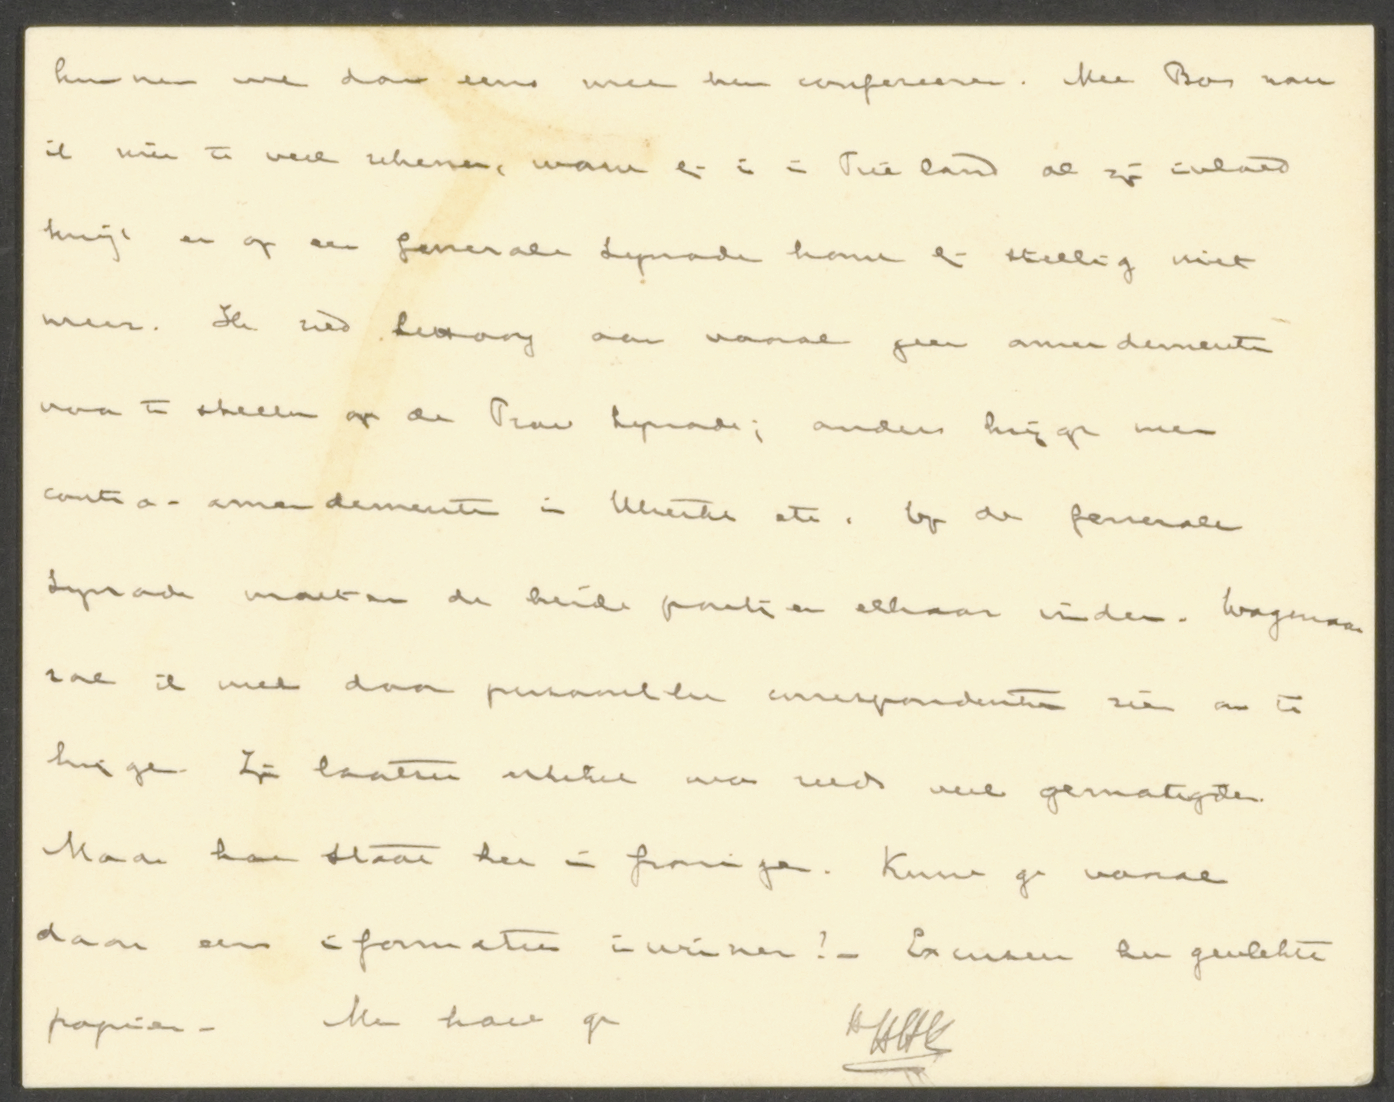 kunnen we dan eens mee hen confereeren. Met Bos zou
ik niet te veel rekenen, want hij is in Friesland al zijn invloed
kwijt en op een Generale Synode komt hij stellig niet
meer. Ik ried aan vooral geen amendementen
voor te stellen op de Prov Synode; anders krijgt men
contra-amendementen in Utrecht etc. Op de Generale
Synode moeten de beide partijen elkaar vinden. Wagenaar
zal ik met door persoonlijke correspondentie zien om te
krijgen. Zijn laatste artikel was reeds veel gematigder.
Maar hoe staat het in Groningen. Kunt ge vooral
daar eens informaties inwinnen? - Excuseer het gevlekte
papier - Met hart gr
HHK